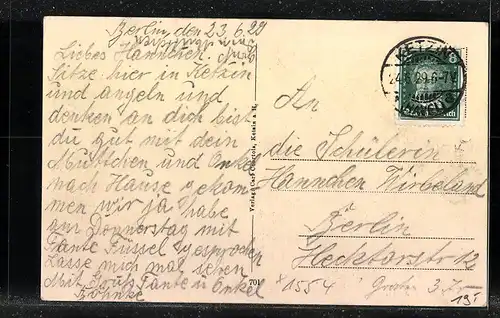 Berlin, den 23.6.29
Liebes Hannchen.
Sitze hier in Ketzin
und angeln und
denken an dich bist
du gut mit dein
Muttchen und Onkel
nach Hause gekom
men wir ja habe
am Donnerstag mit
Tante Füssel gesprochen
Lasse mich mal sehen
Mit Gruß Tante u Onkel
Böhnke
Verlag: Carl Ketzin a. H.
701
KETZIN
24.6.29.6-7V
8
An
die Schülerin
Hannchen Wirbeland
Berlin
Heckterstr 12
1554
19